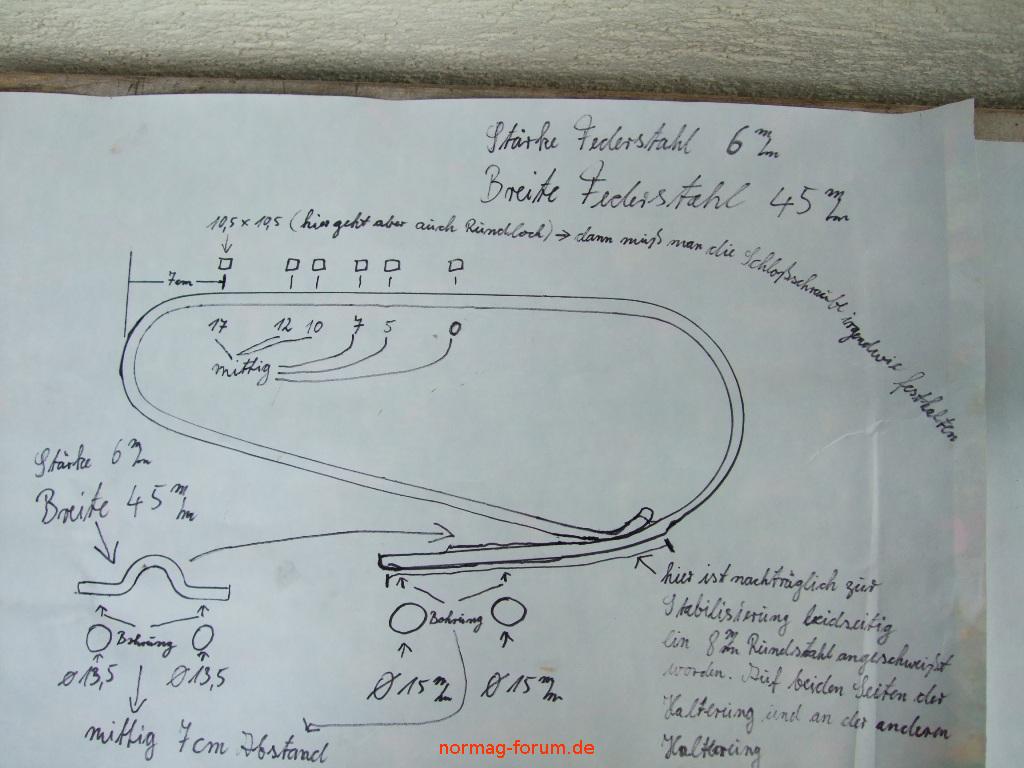 Stärke Federstahl 6 m/m
Breite Federstahl 45 m/m
10,5 x 10,5 (hier geht aber auch Rundloch) → dann muß man die Schloßschraube irgendwie festhalten
7cm
17 12 10 7 5 0
mittig
Stärke 6 m/m
Breite 45 m/m
Bohrung
Ø 13,5 Ø 13,5
mittig 7cm Abstand
Bohrung
Ø 15 m/m Ø 15 m/m
hier ist nachträglich zur
Stabilisierung beidseitig
ein 8 m/m Rundstahl angeschweißt
worden. Auf beiden Seiten der
Halterung und an der anderen
Halterung
normag-forum.de